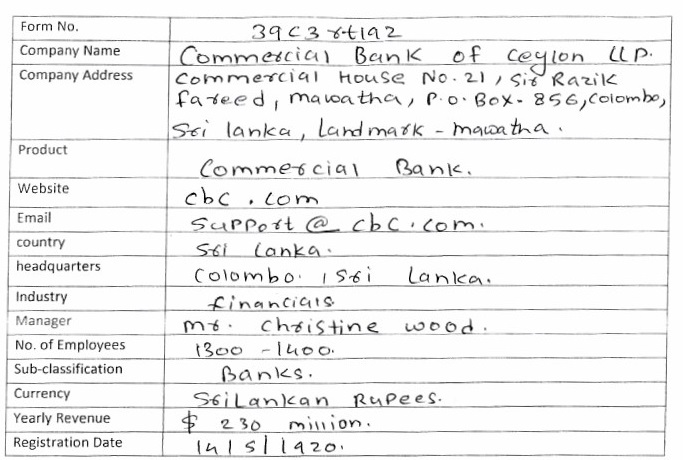 Form No. 39C3rt1a2
Company Name Commercial Bank of Ceylon LLP.
Company Address Commercial House No.21, Sir Razik
Fareed, mawatha, P.O. Box. 856, Colombo,
Sri lanka, Landmark - mawatha.
Product Commercial Bank.
Website cbc.com
Email support@cbc.com.
country Sri Lanka.
headquarters Colombo, Sri Lanka.
Industry financials
Manager mr. Christine wood.
No. of Employees 1300 - 1400.
Sub-classification Banks.
Currency SriLankan Rupees.
Yearly Revenue $ 230 million.
Registration Date 14/5/1920.